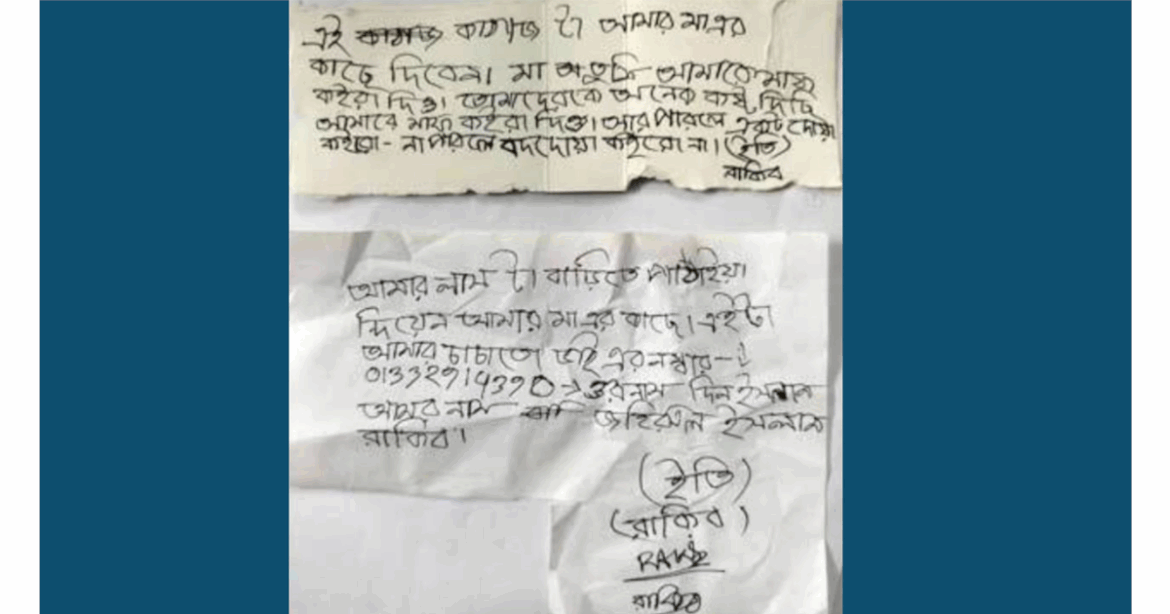 এই কাগজ কাগজ টা আমার মা এর
কাছে দিবেন। মা তুমি আমাকে মাফ
কইরা দিও। তোমাদেরকে অনেক কষ্ট দিছি
আমারে মাফ কইরা দিও। আর পারলে একটু দোয়া
কইরো - না পারলে বদদোয়া কইরো না। (ইতি)
রাকিব
আমার লাস টা বাড়িতে পাঠাইয়া
দিয়েন আমার মা এর কাছে। এইটা
আমার চাচাতো ভাই এর নম্বার -
→ ওর নাম দিন ইসলাম
আমার নাম জহিরুল ইসলাম
রাকিব।
(ইতি)
(রাকিব)
রাকিব